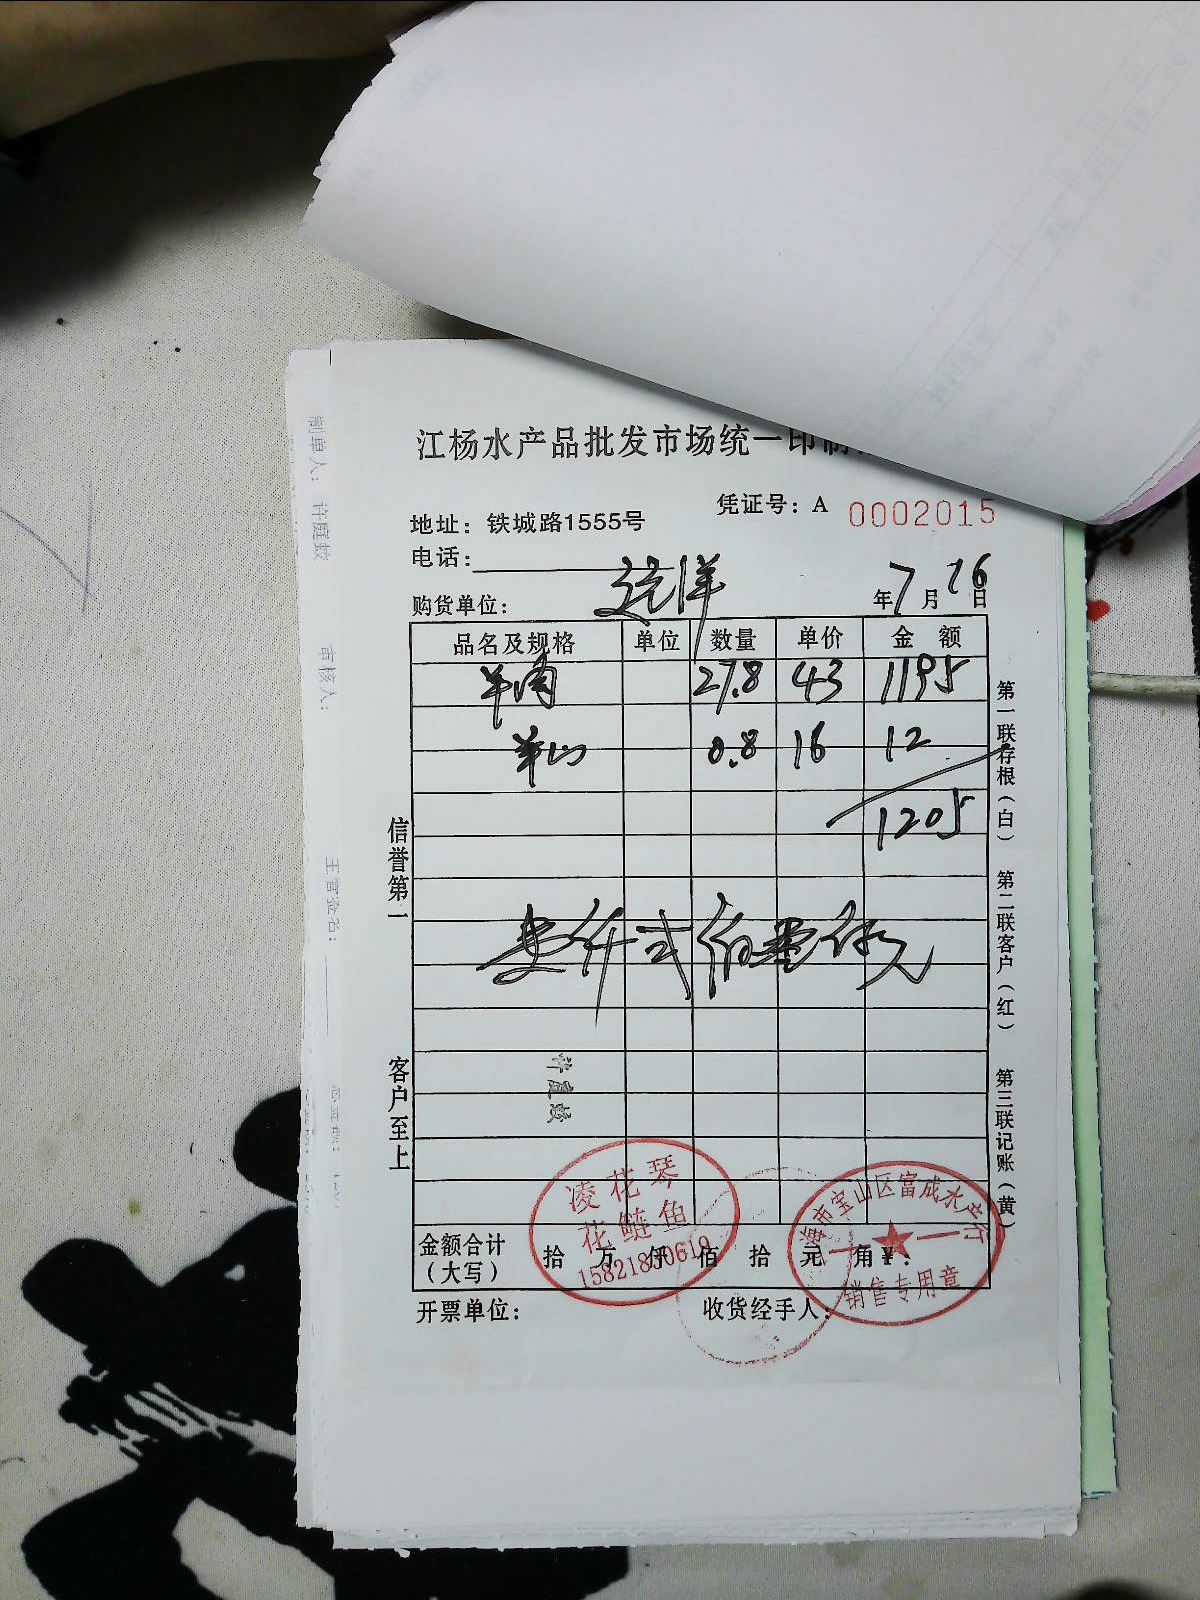 江杨水产品批发市场统一印制
凭证号：A 0002015
地址：铁城路1555号
电话：
购货单位： 远洋 年7月26日
品名及规格 单位 数量 单价 金额
羊肉 27.8 43 1195
0.8 16 12
1205
壹仟弍佰零伍元
许庭蛟
信誉第一
客户至上
第一联存根（白）
第二联客户（红）
第三联记账（黄）
凌花琴
花鲢鱼
15821830619
海市宝山区富成水产行
销售专用章
金额合计（大写） 拾 万 仟 佰 拾 元 角 ¥：
开票单位： 收货经手人：
制单人： 许庭蛟
审核人：
主管签名：